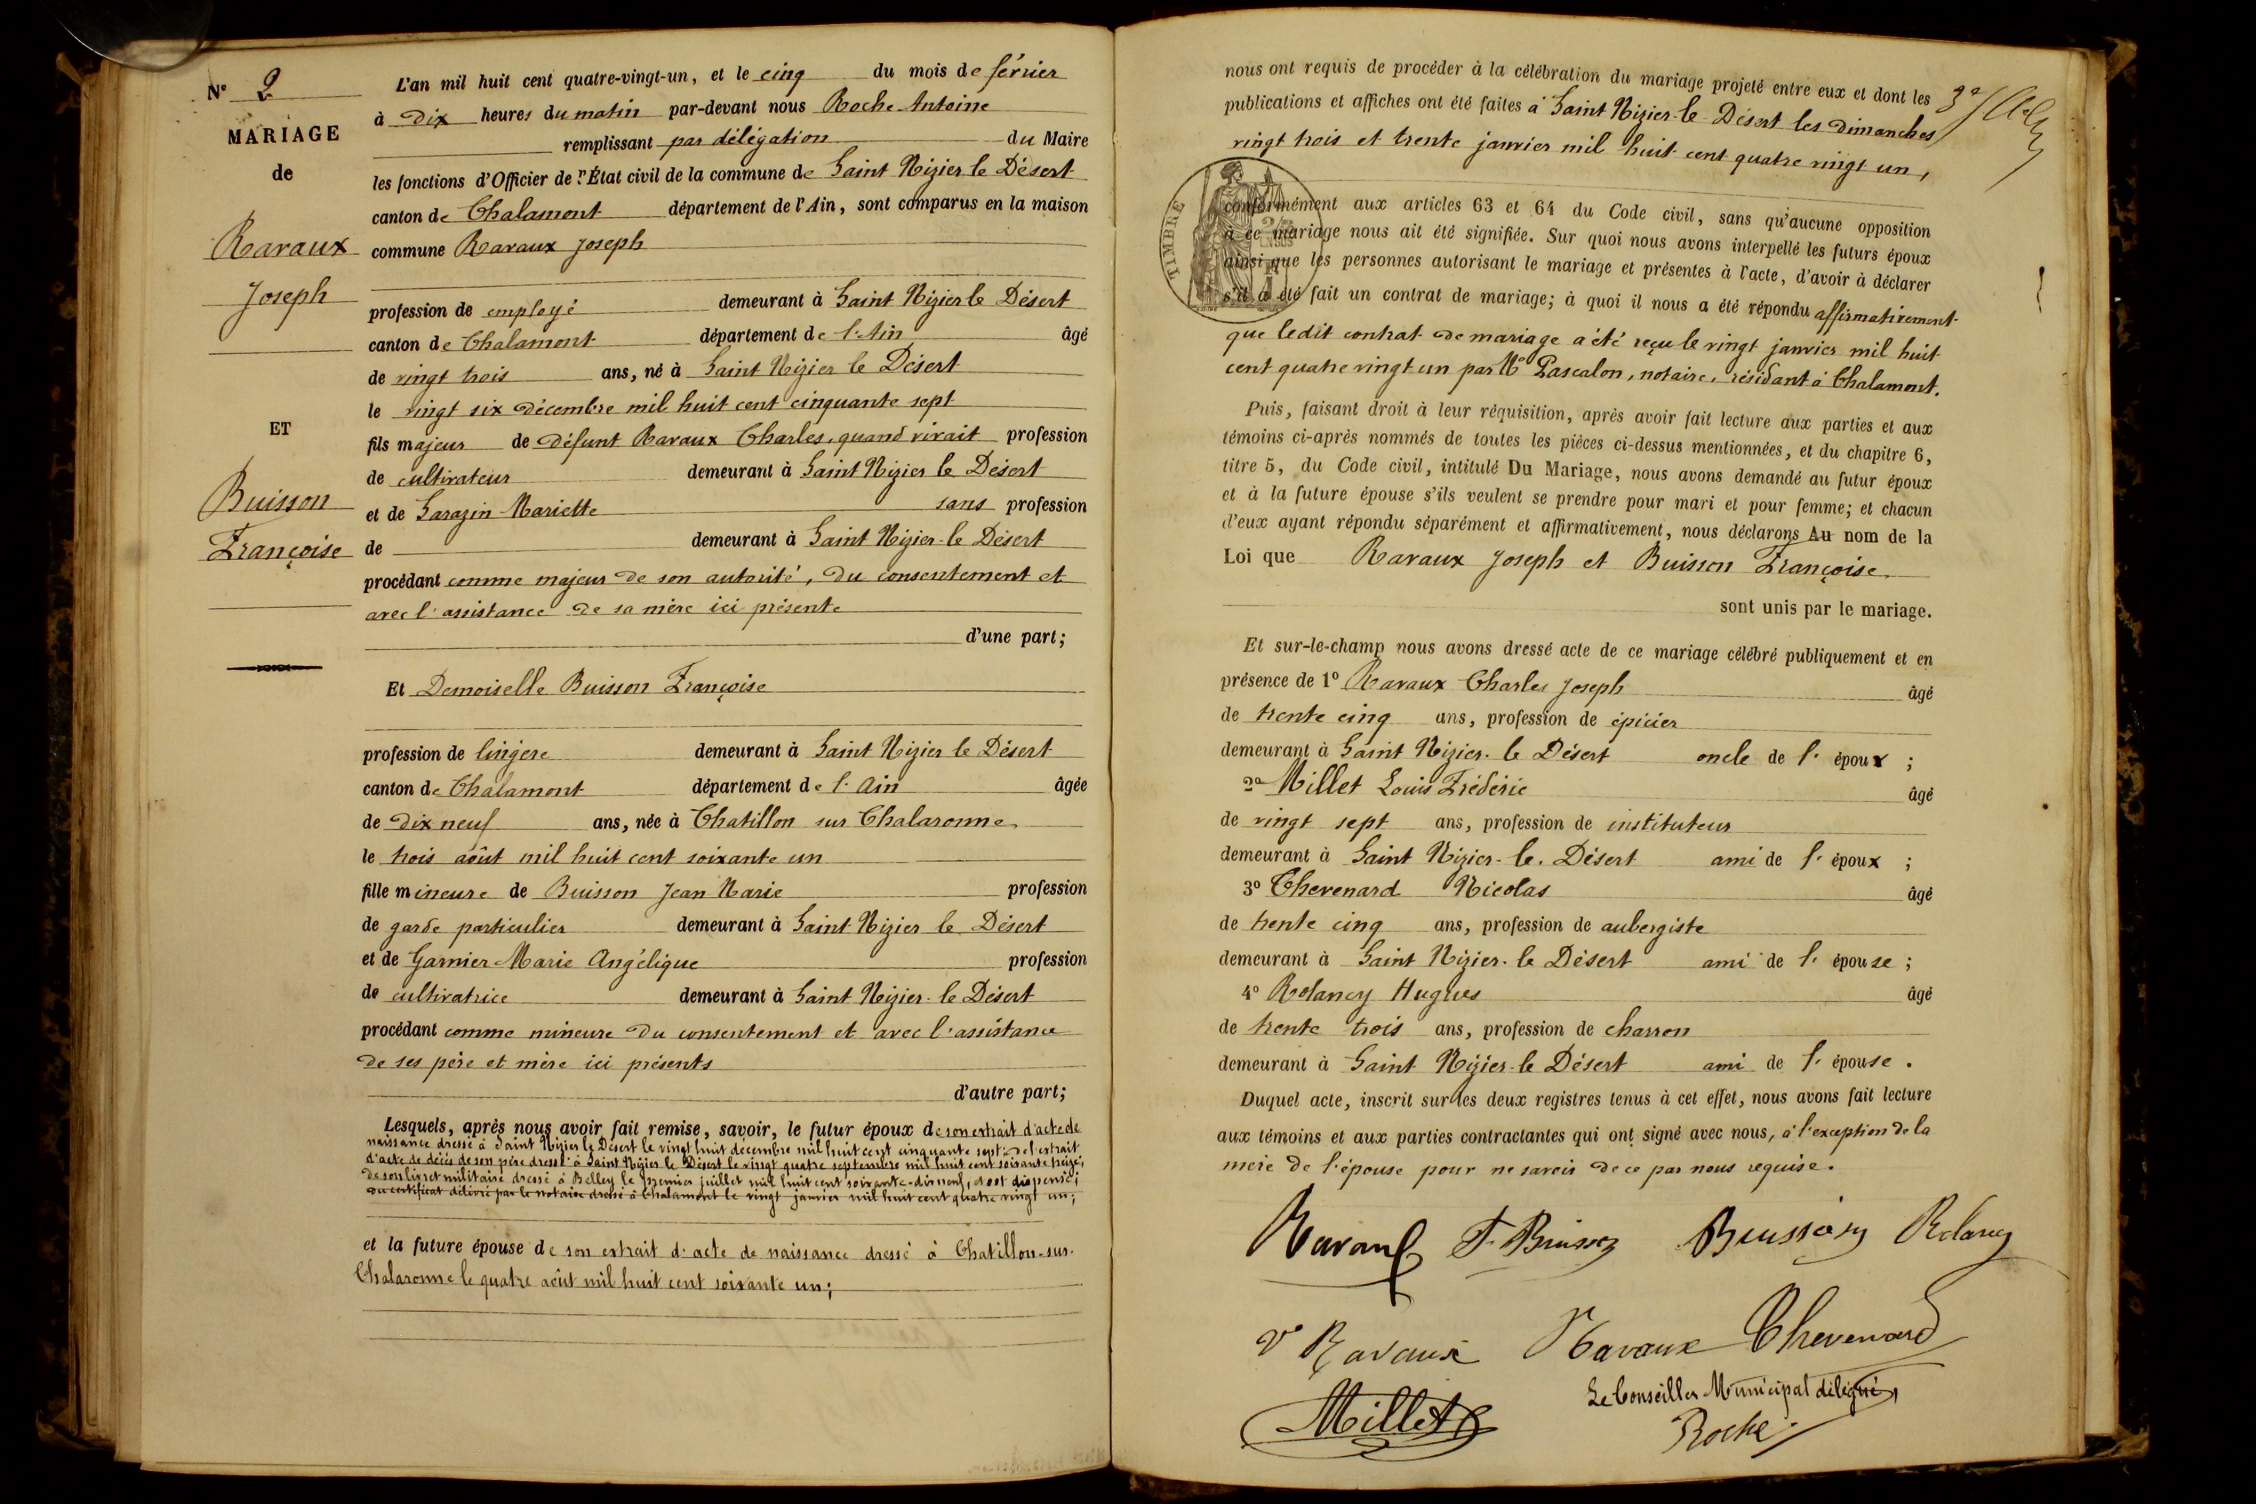 N° 2
MARIAGE
de
Ravaux
Joseph
ET
Buisson
Françoise
L'an mil huit cent quatre-vingt-un, et le cinq du mois de février
à dix heures du matin par-devant nous Roche Antoine
remplissant par délégation du Maire
les fonctions d'Officier de l'État civil de la commune de Saint Nizier le Désert
canton de Chalamont département de l'Ain, sont comparus en la maison
commune Ravaux Joseph
profession de employé demeurant à Saint Nizier le Désert
canton de Chalamont département de l'Ain âgé
de vingt trois ans, né à Saint Nizier le Désert
le vingt six décembre mil huit cent cinquante sept
fils majeur de défunt Ravaux Charles, quand vivait profession
de cultivateur demeurant à Saint Nizier le Désert
et de Sarazin Mariette sans profession
de demeurant à Saint Nizier-le Désert
procédant comme majeur de son autorité, du consentement et
avec l'assistance de sa mère ici présente
d'une part;
Et Demoiselle Buisson Françoise
profession de lingere demeurant à Saint Nizier le Désert
canton de Chalamont département de l'Ain âgée
de dix neuf ans, née à Chatillon sur Chalaronne
le trois août mil huit cent soixante un
fille mineure de Buisson Jean Marie profession
de garde particulier demeurant à Saint Nizier le Désert
et de Garnier Marie Angélique profession
de cultivatrice demeurant à Saint Nizier-le Désert
procédant comme mineure du consentement et avec l'assistance
de ses père et mère ici présents
d'autre part;
Lesquels, après nous avoir fait remise, savoir, le futur époux de son extrait d'acte de
naissance dressé à Saint Nizier le Désert le vingt huit décembre mil huit cent cinquante sept; de l'extrait
d'acte de décès de son père dressé à Saint Nizier le Désert le vingt quatre septembre mil huit cent soixante treize;
de son livret militaire dressé à Belley le premier juillet mil huit cent soixante-dix neuf, dont dispensé;
du certificat délivré par le notaire dressé à Chalamont le vingt janvier mil huit cent quatre vingt un;
et la future épouse de son extrait d'acte de naissance dressé à Chatillon-sur-
Chalaronne le quatre août mil huit cent soixante un;
nous ont requis de procéder à la célébration du mariage projeté entre eux et dont les
publications et affiches ont été faites à Saint Nizier-le-Désert les dimanches
vingt trois et trente janvier mil huit cent quatre vingt un,
TIMBRE
conformément aux articles 63 et 64 du Code civil, sans qu'aucune opposition
à ce mariage nous ait été signifiée. Sur quoi nous avons interpellé les futurs époux
ainsi que les personnes autorisant le mariage et présentes à l'acte, d'avoir à déclarer
s'il a été fait un contrat de mariage; à quoi il nous a été répondu affirmativement
que ledit contrat de mariage a été reçu le vingt janvier mil huit
cent quatre vingt un par Me Pascalon, notaire, résidant à Chalamont.
Puis, faisant droit à leur réquisition, après avoir fait lecture aux parties et aux
témoins ci-après nommés de toutes les pièces ci-dessus mentionnées, et du chapitre 6,
titre 5, du Code civil, intitulé Du Mariage, nous avons demandé au futur époux
et à la future épouse s'ils veulent se prendre pour mari et pour femme; et chacun
d'eux ayant répondu séparément et affirmativement, nous déclarons Au nom de la
Loi que Ravaux Joseph et Buisson Françoise
sont unis par le mariage.
Et sur-le-champ nous avons dressé acte de ce mariage célébré publiquement et en
présence de 1° Ravaux Charles Joseph âgé
de trente cinq ans, profession de épicier
demeurant à Saint Nizier-le Désert oncle de l'époux ;
2° Millet Louis Frédéric âgé
de vingt sept ans, profession de instituteur
demeurant à Saint Nizier-le-Désert ami de l'époux ;
3° Chevenard Nicolas âgé
de trente cinq ans, profession de aubergiste
demeurant à Saint Nizier-le Désert ami de l'épouse ;
4° Rolancy Hugues âgé
de trente trois ans, profession de charron
demeurant à Saint Nizier-le Désert ami de l'épouse .
Duquel acte, inscrit sur les deux registres tenus à cet effet, nous avons fait lecture
aux témoins et aux parties contractantes qui ont signé avec nous, à l'exception de la
mère de l'épouse pour ne savoir de ce par nous requise.
Ravaux F. Buisson Buisson Rolancy
Ve Ravaux Ravaux Chevenard
Millet
Le Conseiller Municipal délégué,
Roche